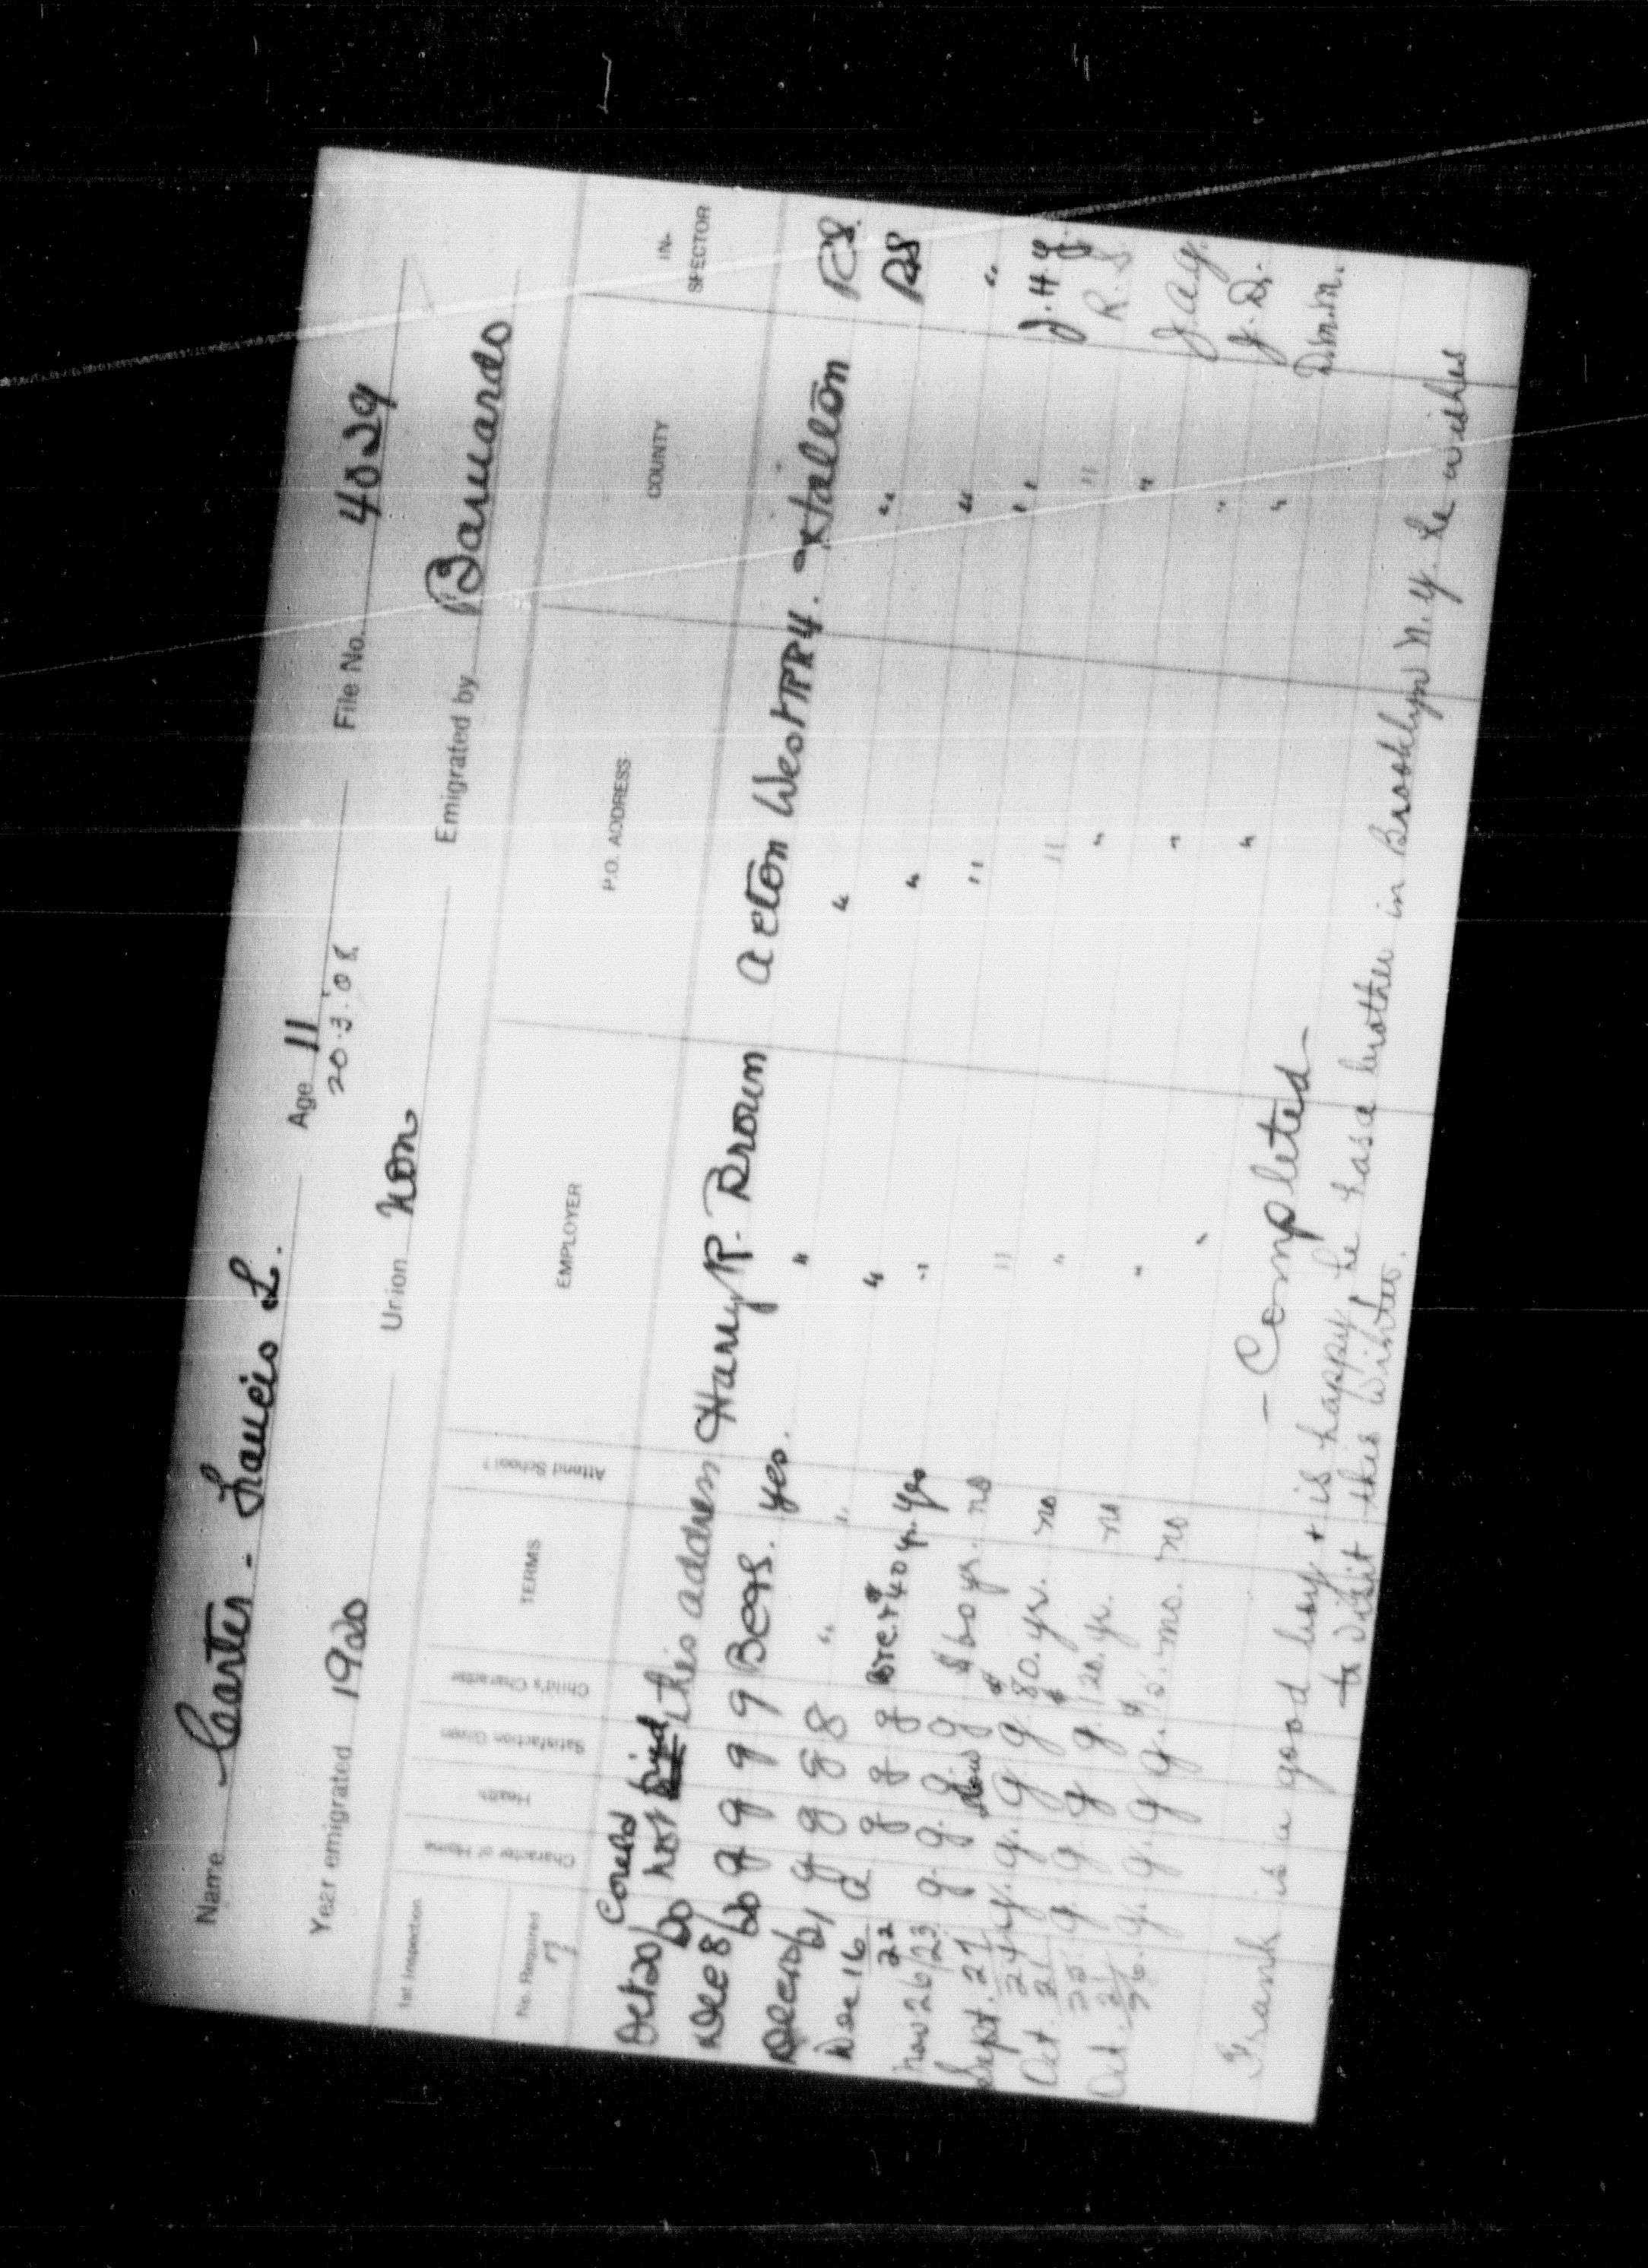 Name Carter - Francis L. Age 11
20.3.'08.
Year emigrated 1920 Union Non File No. 4029
Emigrated by Barnardo
1st Inspection
No. Required 7
Character of Home Health Satisfaction Given Child's Character TERMS Attend School? EMPLOYER P.O. ADDRESS COUNTY IN-SPECTOR
Oct 20/20 Could not find this address Harry R. Brown Acton West RR4. Halton RS.
Dec 8/20 g g g g B&C. yes. " " " RS
Dec /21 g g g g " " " " " "
Dec 16 22 g g g B&C. + $40 yr. yes " " " J.H.G.
Nov 26/23 g. g. g. g $60 yr. no " " " R.S.
Sept. 27 24 g. g. g g $80. yr. no " " " J.A.G.
Oct. 21 25 g g g g $120. yr. no " " " J.D.
Oct. 21 26. g. g. g g. mo. no " " " D.M.M.
— Completed —
Frank is a good boy + is happy, he has a brother in Brooklyn N.Y. he wishes
to visit this Winter.